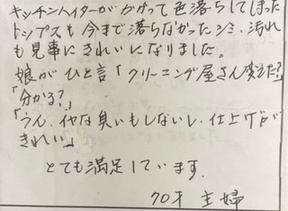 キッチンハイターがかかって色落ちしてしまった
トップスも今まで落ちなかったシミ、汚れ
も見事にきれいになりました。
娘がひと言「クリーニング屋さん変えた?」
「分かる?」
「うん、イヤな臭いもしないし、仕上げが
きれい」
とても満足しています。
70才 主婦